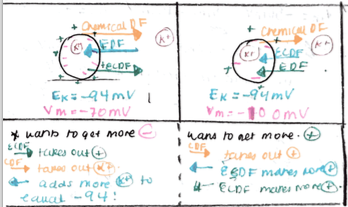 Chemical DF
EDF
K+
K+
ECDF
EK = -94mV
Vm = -70mV
Chemical DF
K+
K+
ECDF
EDF
EK = -94mV
Vm = -100mV
* wants to get more -
ECDF takes out +
CDF takes out K+
adds more K+ to
equal -94!
wants to get more +
CDF takes out +
EDF makes more +
ECDF makes more +